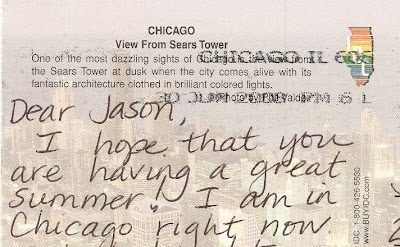 CHICAGO
View From Sears Tower
One of the most dazzling sights of Chicago is the view from
the Sears Tower at dusk when the city comes alive with its
fantastic architecture clothed in brilliant colored lights.
Photo by
CHICAGO IL 606
PM
Dear Jason,
I hope that you
are having a great
summer. I am in
Chicago right now.
IDC. 1-800-426-5530
www.BUYIDC.com